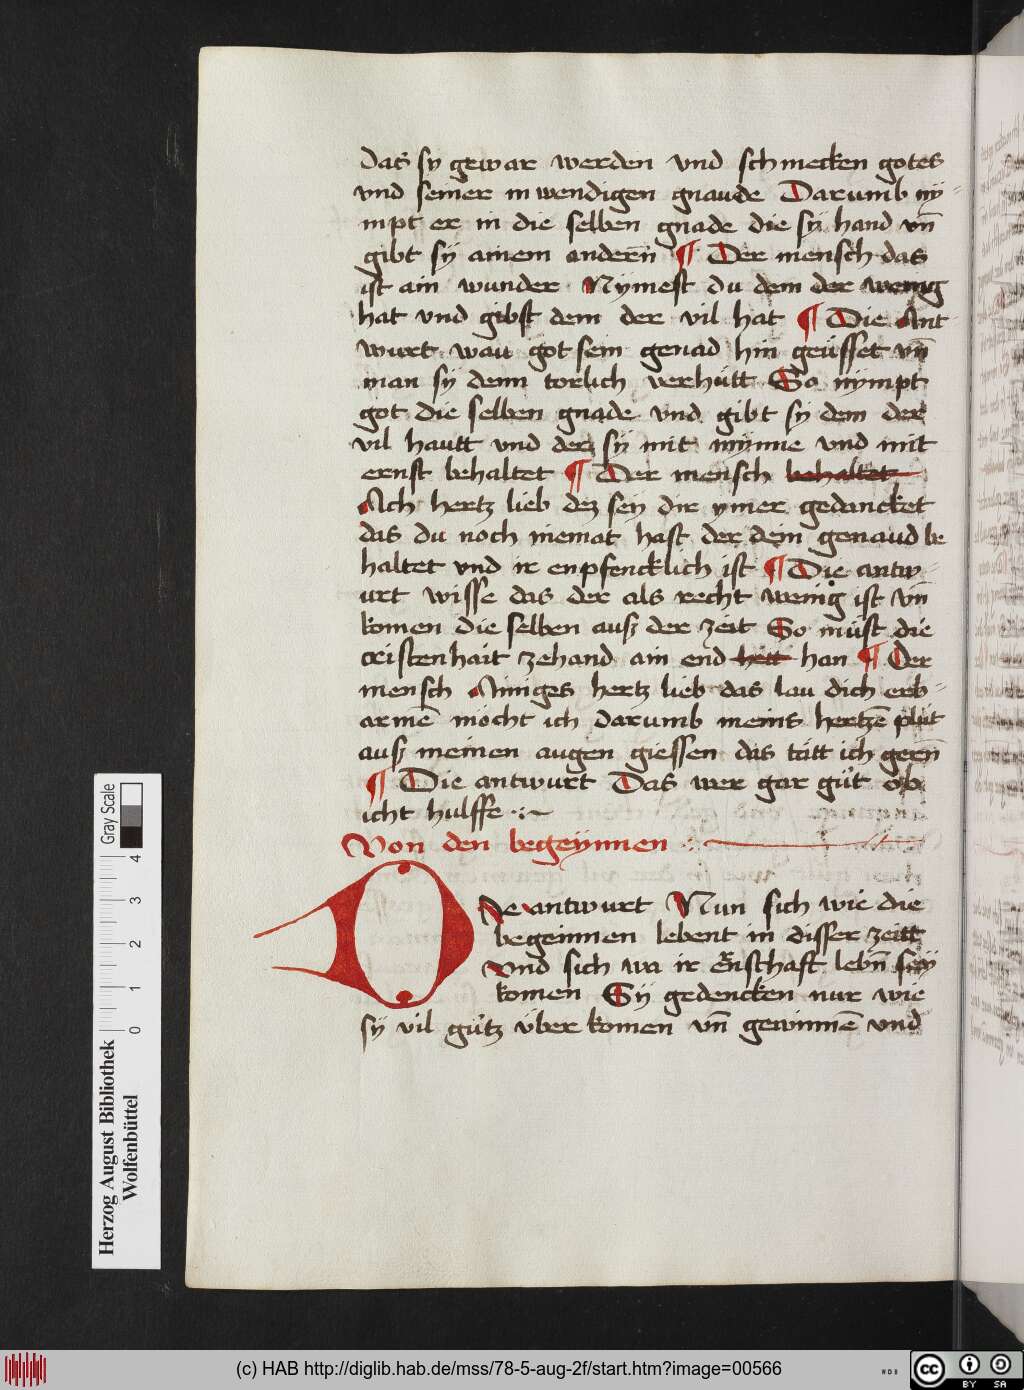 das sy gewar werden vnd schmecken gotes
vnd seiner inwendigen gnaude Darumb ny-
mpt er in die selben gnade die sy hand vn̄
gibt sy ainem andern̄ ¶ Der mensch das
ist ain wunder Nymest du dem der wenig
hat vnd gibst dem der vil hat ¶ Die Ant
wurt wau got sein genad hin geüsset vn̄
man sy denn torlich verhütt So nympt
got die selben gnade vnd gibt sy dem der
vil hautt vnd der sy mit mynne vnd mit
ernst behaltet ¶ Der mensch behaltet
Ach hertz lieb dez sey dir ymer gedancket
das du noch niemat hast der dein genaud be
haltet vnd ir enpfencklich ist ¶ Die antw-
urt wisse das der als recht wenig ist vn̄
komen die selben auß der zeit So müst die
cristenhait zehand ain end hett han ¶ Der
mensch Ainiges hertz lieb das lau dich erb-
armē möcht ich darumb meins hertzē plüt
auß meinen augen giessen das tätt ich gern̄
¶ Die antwurt Das wer gar güt ob
icht hulffe
Von den begeynnen
De antwurt Nun sich wie die
begeinnen lebent in disser zeitt
vnd sich wa ir lebn̄ sey
komen Sy gedencken nur wie
sy vil gütz über komen vn̄ gewinnē vnd
Herzog August Bibliothek
Wolfenbüttel
0 1 2 3 4
Gray Scale
(c) HAB http://diglib.hab.de/mss/78-5-aug-2f/start.htm?image=00566
cc BY SA